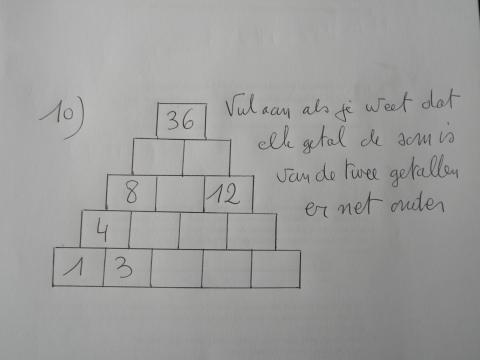 10)
Vul aan als je weet dat
elk getal de som is
van de twee getallen
er net onder
36
8 12
4
1 3